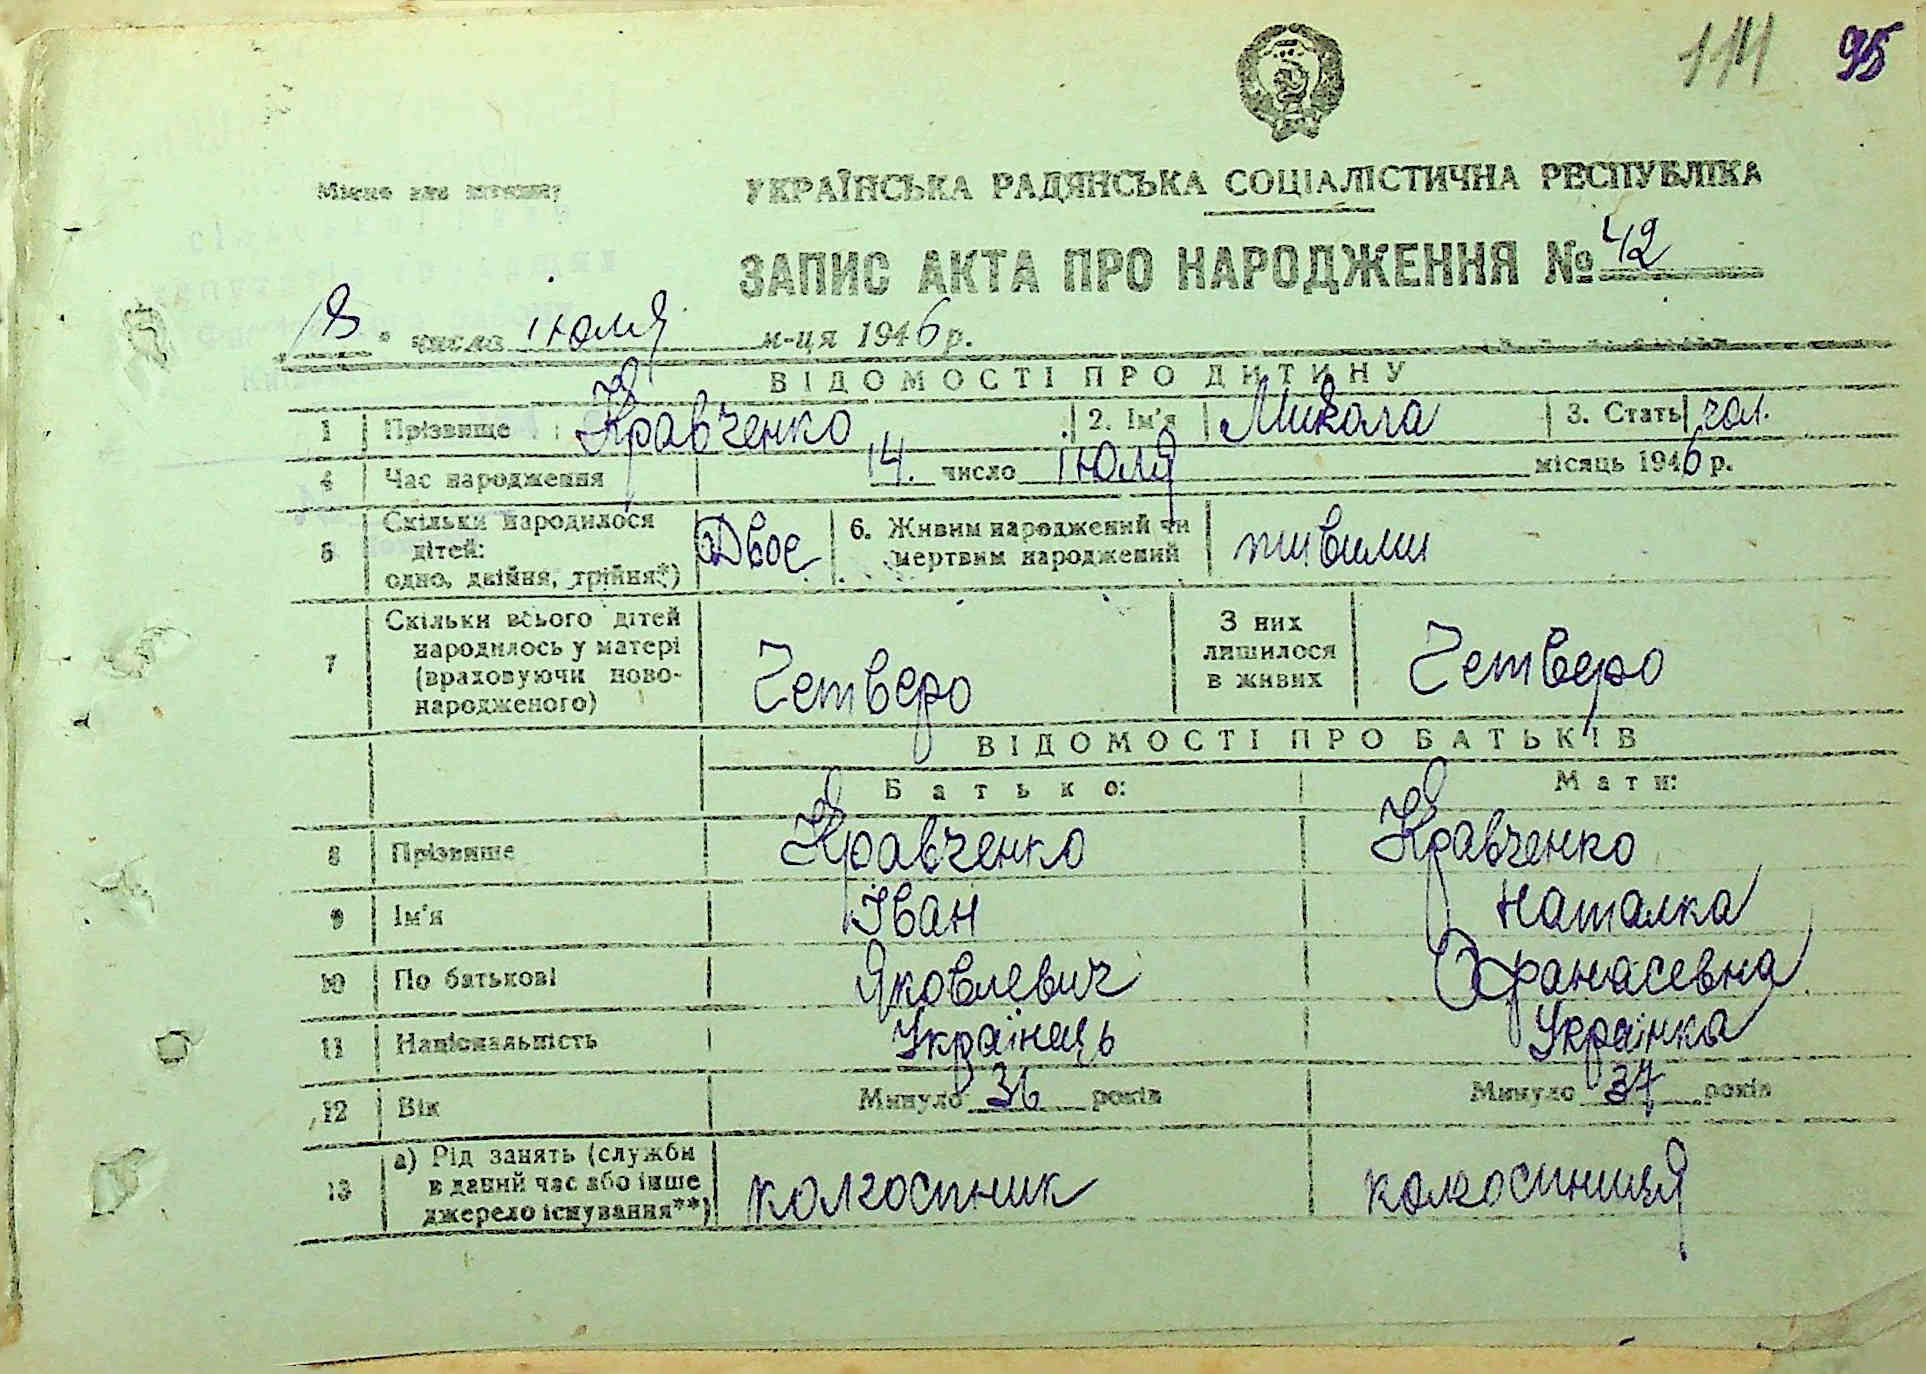 114 95
Місце для штампу
УКРАЇНСЬКА РАДЯНСЬКА СОЦІАЛІСТИЧНА РЕСПУБЛІКА
ЗАПИС АКТА ПРО НАРОДЖЕННЯ № 42
18 " число іюля м-ця 1946 р.
ВІДОМОСТІ ПРО ДИТИНУ
1 Прізвище Кравченко 2. Ім'я Микола 3. Стать чол.
4 Час народження 14. число іюля місяць 1946 р.
5 Скільки народилося дітей: одно, двійня, трійня*) Двое 6. Живим народжений чи мертвим народжений живими
7 Скільки всього дітей народилось у матері (враховуючи ново-народженого) Четверо З них лишилося в живих Четверо
ВІДОМОСТІ ПРО БАТЬКІВ
Батько: Мати:
8 Прізвище Кравченко Кравченко
9 Ім'я Іван Наталка
10 По батькові Яковлевич Афанасевна
11 Національність Українець Українка
12 Вік Минуло 36 років Минуло 37 років
13 а) Рід занять (служби в даний час або інше джерело існування**) колгоспник колгоспниця